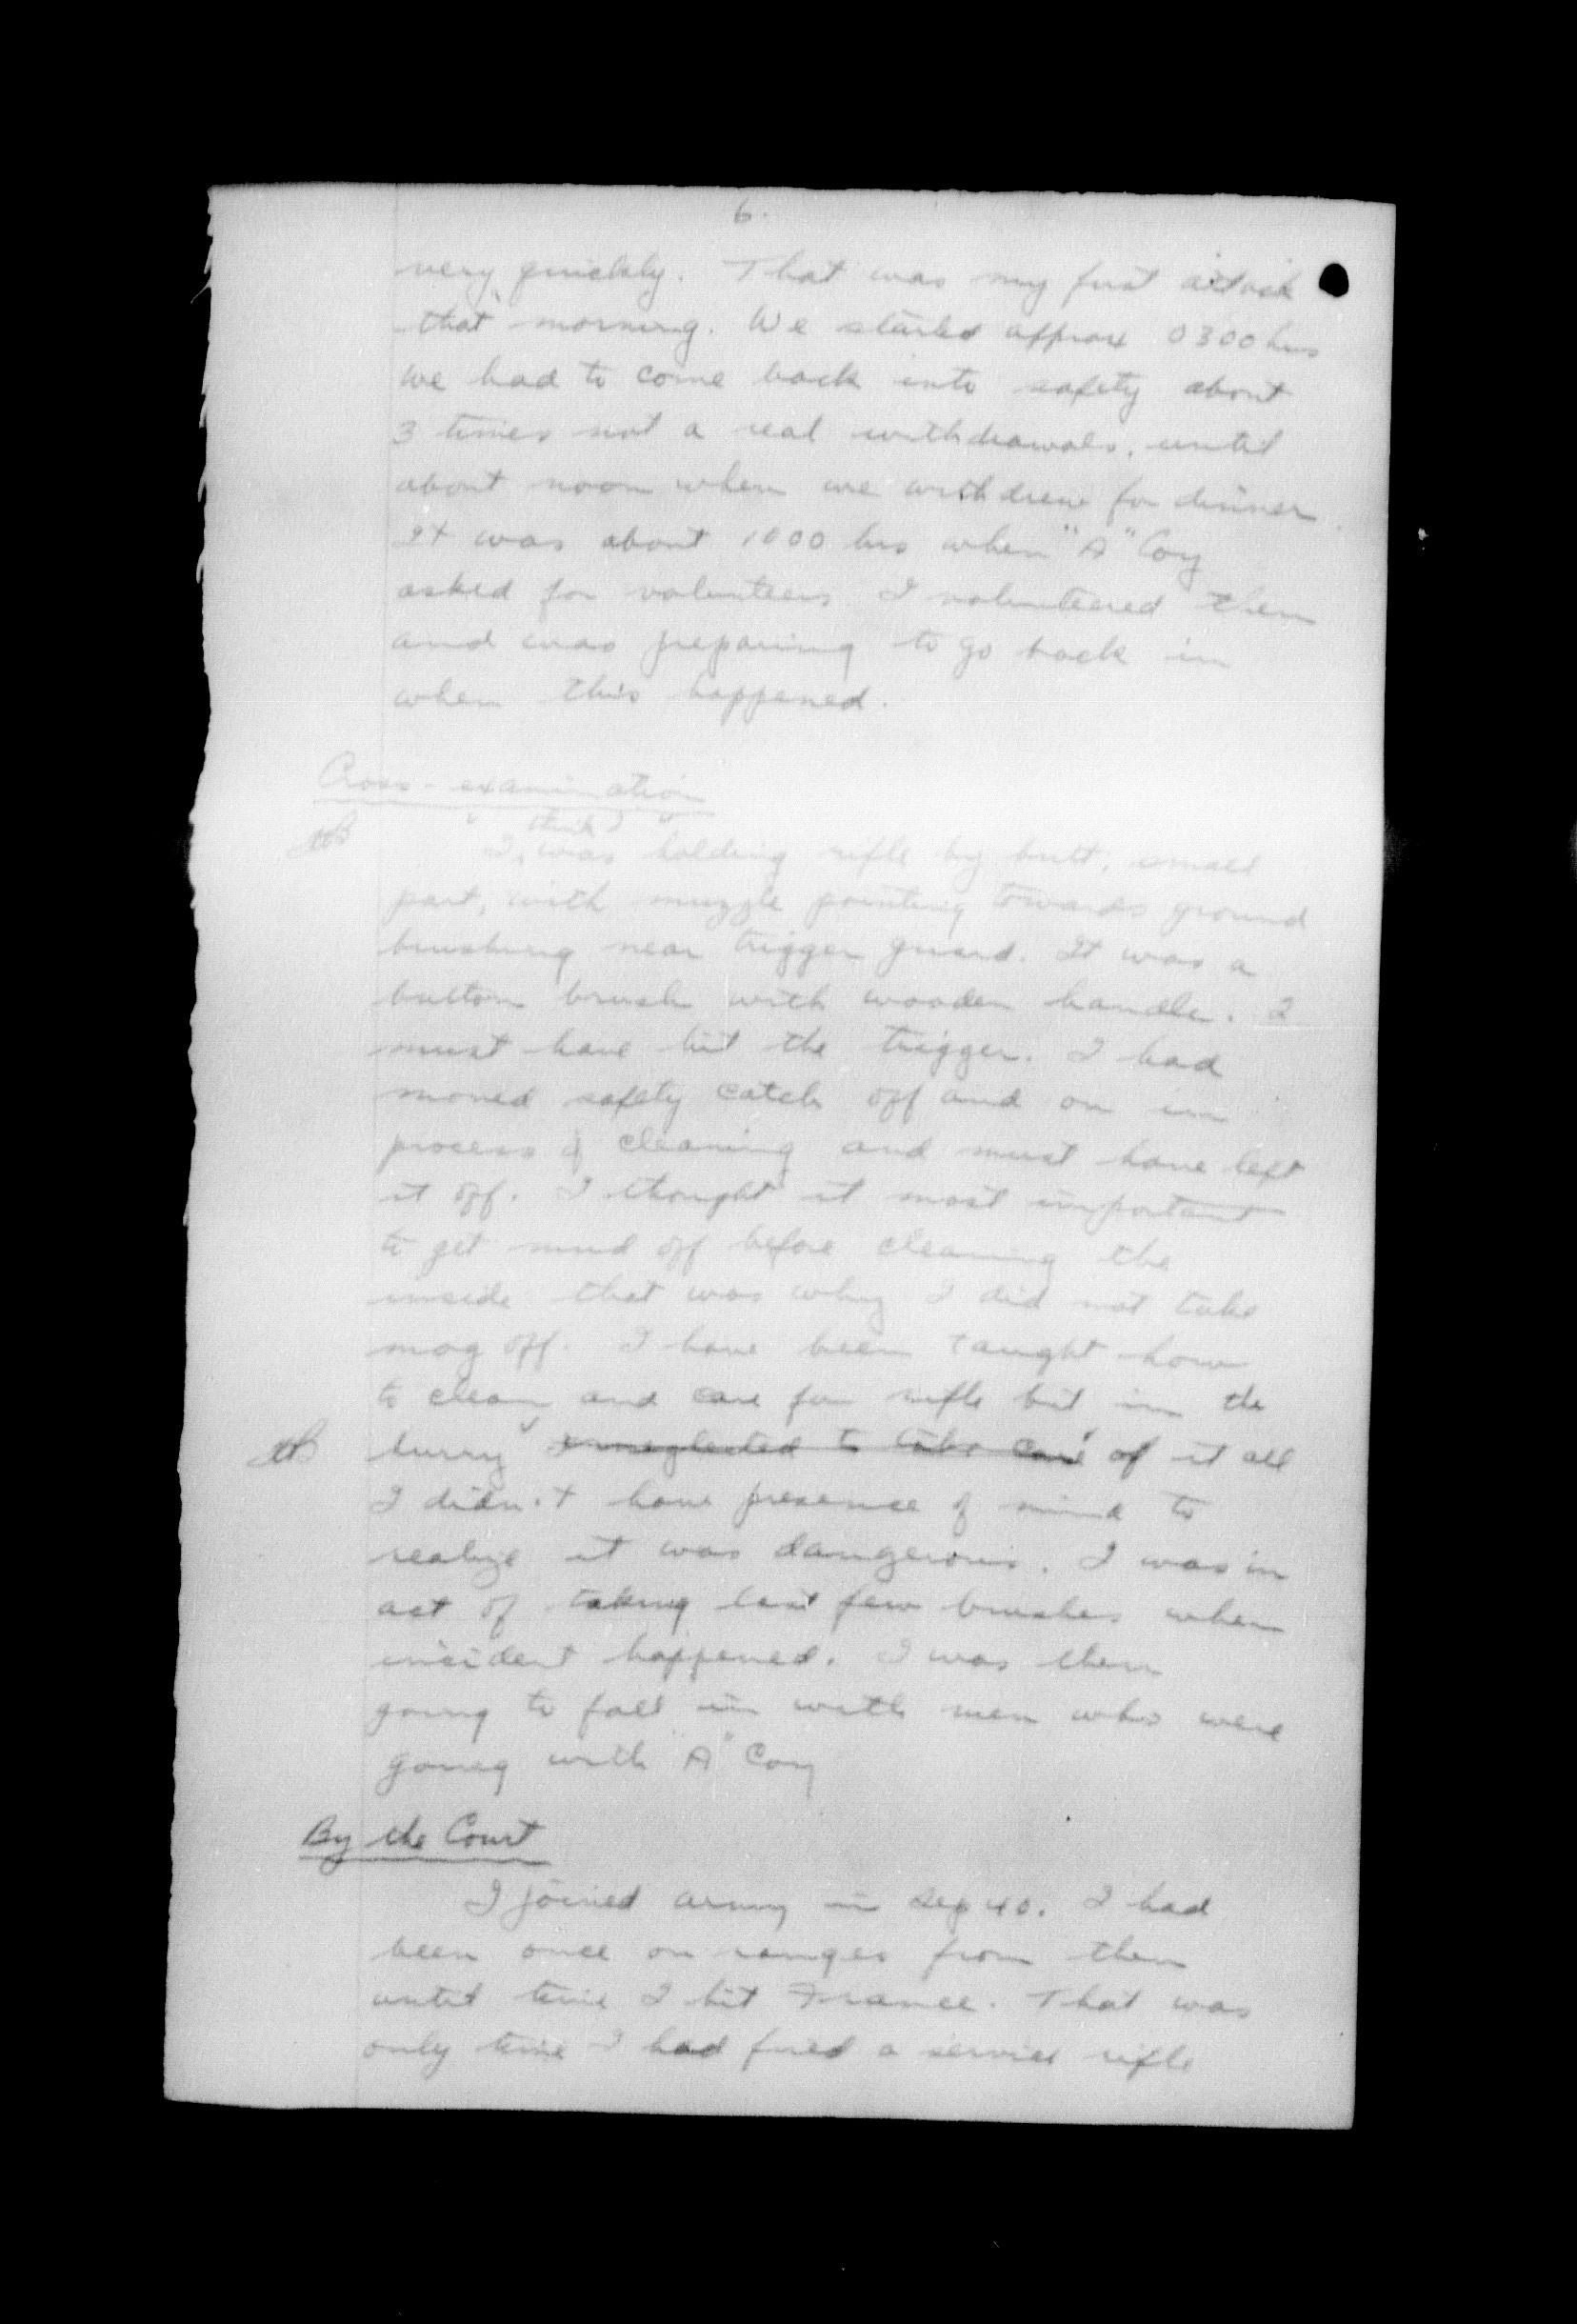 6.
very quickly. That was my first attack
that morning. We started approx 0300 hrs
we had to come back into safety about
3 times not a real withdrawals, until
about noon when we withdrew for dinner.
It was about 1000 hrs when "A" Coy
asked for volunteers I volunteered then
and was preparing to go back in
when this happened.
Cross-examination
think I
I was holding rifle by butt, small
part, with muzzle pointing towards ground
brushing near trigger guard. It was a
button brush with wooden handle. I
must have hit the trigger. I had
moved safety catch off and on in
process of cleaning and must have left
it off. I thought it most important
to get mud off before cleaning the
inside that was why I did not take
mag off. I have been taught how
to clean and care for rifle but in the
hurry I neglected to take care of it all
I didn't have presence of mind to
realize it was dangerous. I was in
act of taking last few brushes when
incident happened. I was then
going to fall in with men who were
going with "A" Coy
By the Court
I joined army in Sep 40. I had
been once on ranges from then
until time I hit France. That was
only time I had fired a service rifle